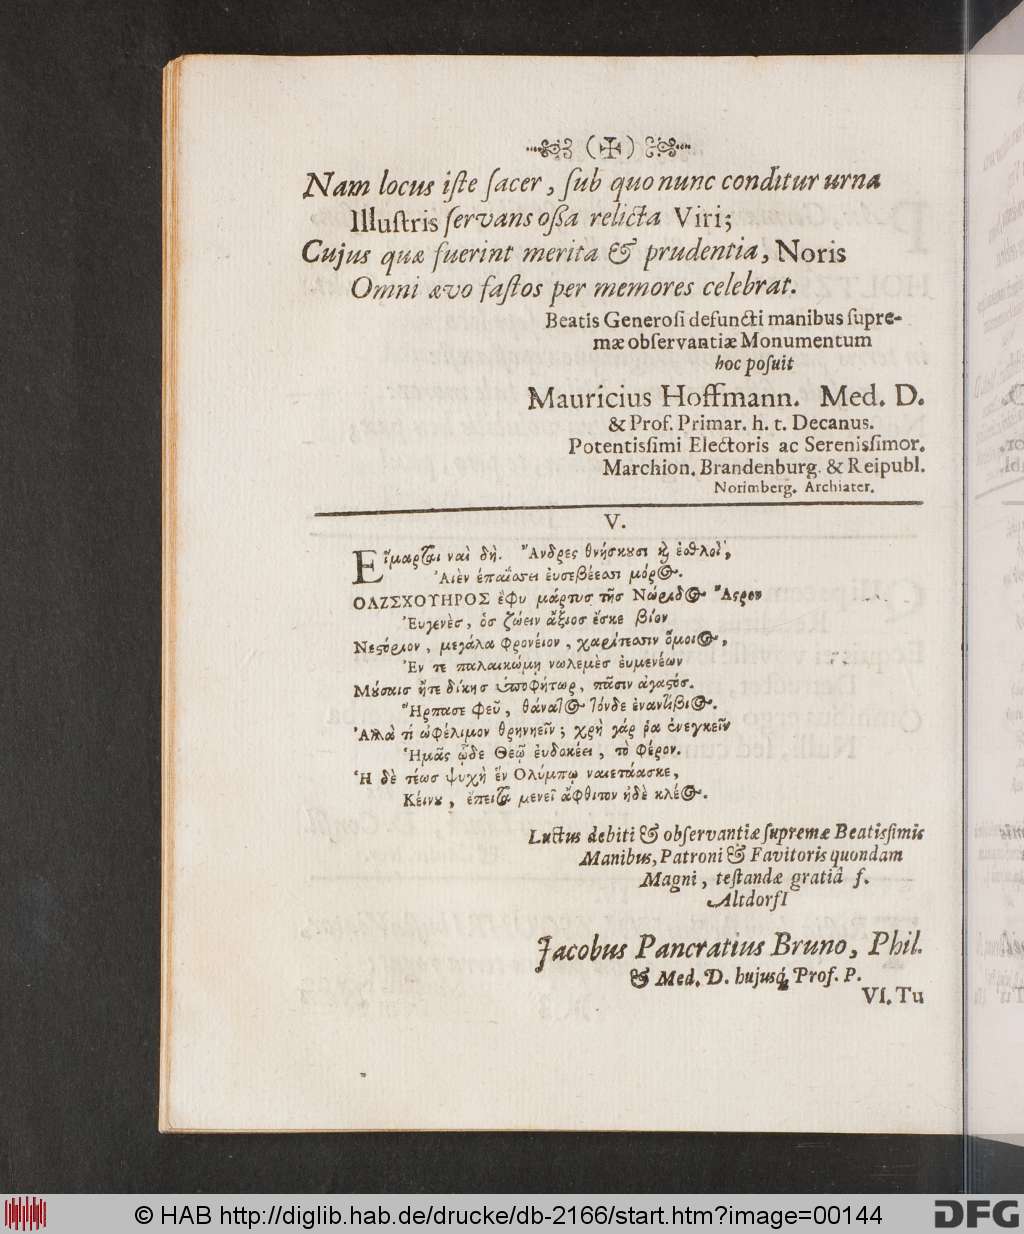 (✠)
Nam locus iſte ſacer, ſub quo nunc conditur urna
Illuſtris ſervans oſſa relicta Viri;
Cujus quæ fuerint merita & prudentia, Noris
Omni ævo faſtos per memores celebrat.
Beatis Generoſi defuncti manibus ſupre-
mæ obſervantiæ Monumentum
hoc poſuit
Mauricius Hoffmann. Med. D.
& Prof. Primar. h. t. Decanus.
Potentisſimi Electoris ac Serenisſimor.
Marchion. Brandenburg. & Reipubl.
Norimberg. Archiater.
V.
Εἵμαρται ναὶ δή. Ἄνδρες θνήσκουσι καὶ ἐσθλοὶ,
Αἰὲν ἐπαΐσσει ἐυσεβέεσσι μόρος.
ΟΛΖΣΧΟΥΗΡΟΣ ἔφυ μάρτυσ τῆς Νώριδος Ἄςρον
Ἐυγενὲς, ὁς ζώειν ἄξιος ἔσκε βίον
Νεςόριον, μεγάλα φρονέων, χαρίτεσσιν ὅμοιος,
Ἐν τε παλαικώμῃ νωλεμὲς ἐυμενέων
Μούσαις ἤτε δίκης ὑποφήτωρ, πᾶσιν ἀγαςός.
Ἥρπασε φεῦ, θάνατος τόνδε ἐναντίβιος.
Ἀλλὰ τί ὠφέλιμον θρηνηεῖν; χρὴ γάρ ῥα ἐνεγκεῖν
Ἡμᾶς ᾧδε Θεῷ ἐυδοκέει, τὸ φέρον.
Ἡ δὲ τέως ψυχὴ ἓν Ολύμπῳ ναιετάασκε,
Κείνου, ἔπειτα μενεῖ ἄφθιτον ἠδὲ κλέος.
Luctus debiti & obſervantiæ ſupremæ Beatisſimis
Manibus, Patroni & Favitoris quondam
Magni, teſtandæ gratiâ f.
Altdorfl
Jacobus Pancratius Bruno, Phil.
& Med. D. hujusq; Prof. P.
VI. Tu
© HAB http://diglib.hab.de/drucke/db-2166/start.htm?image=00144
DFG